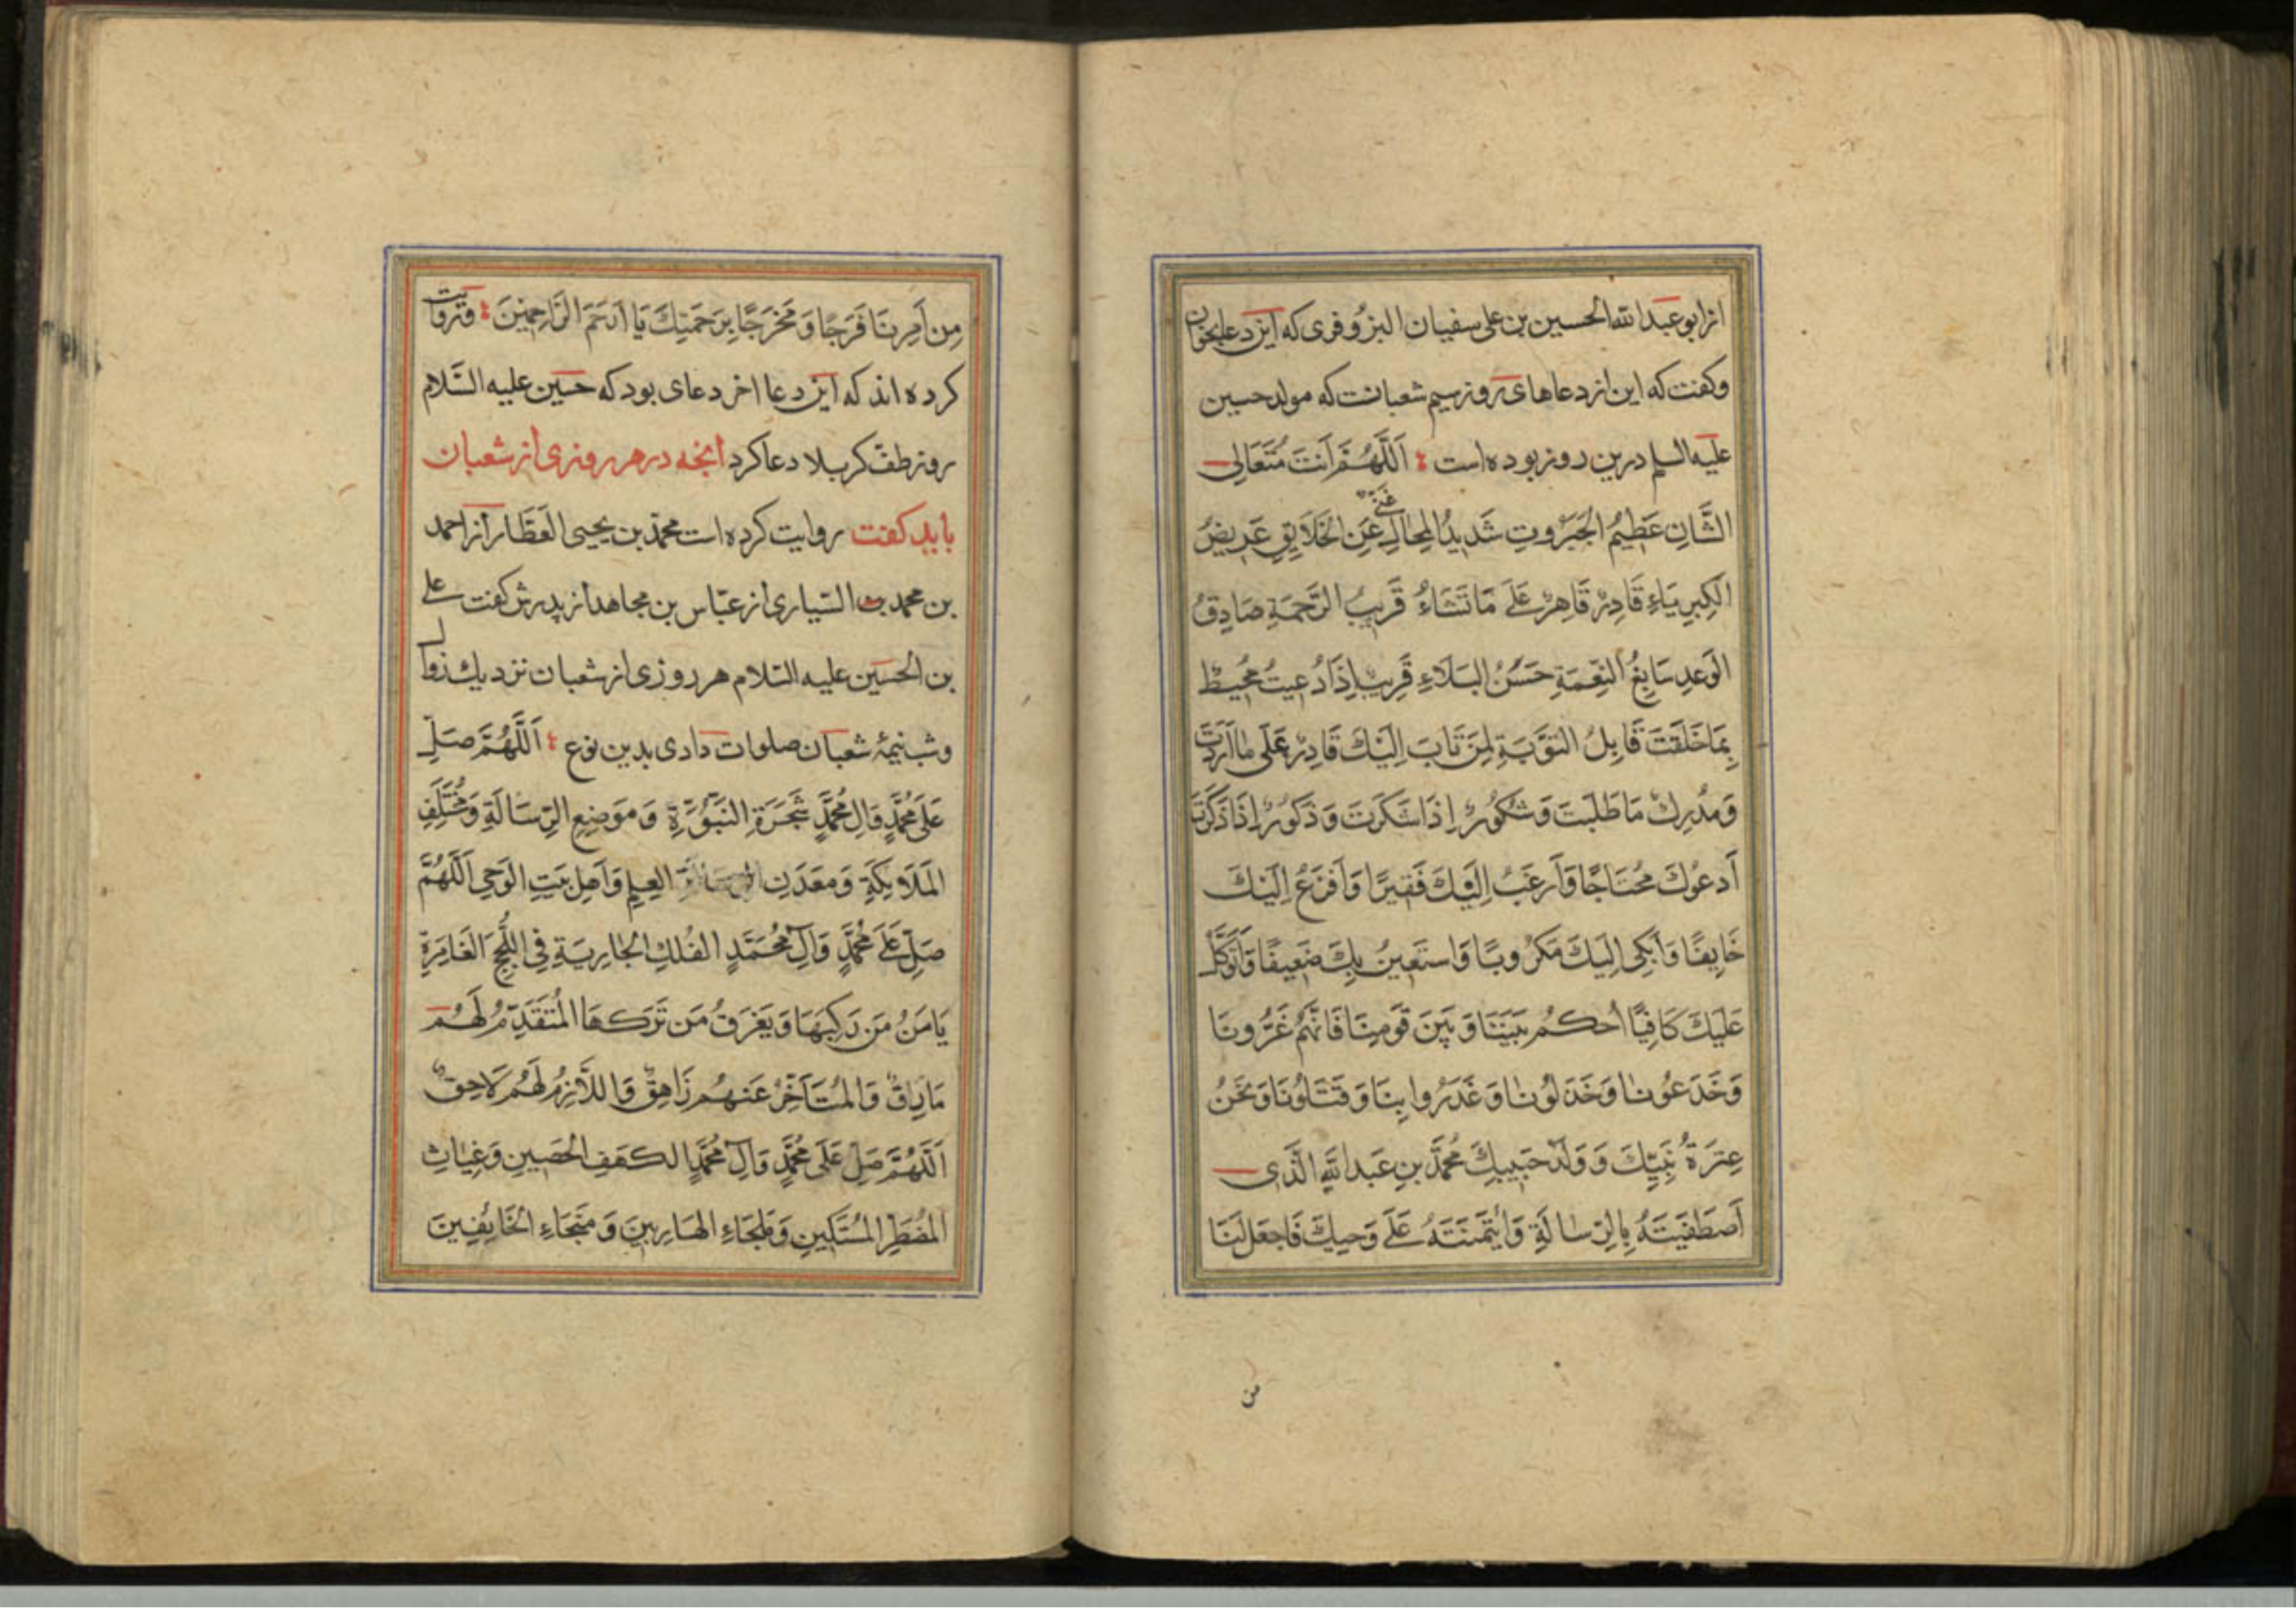 از ابو عبد الله الحسین بن علی سفیان البزوفری که این دعا بخوان
وکفت که این از دعاهای روز سیم شعبانست که مولد حسین
علیه السلم درین روز بوده است اَللَّهُمَّ اَنْتَ مُتَعَالِی
الشَّانِ عَظِیمُ الْجَبَرُوتِ شَدِیدُ الْمِحَالِ غَنِیٌّ عَنِ الْخَلَایِقِ عَرِیضُ
الْکِبْرِیَاءِ قَادِرٌ قَاهِرٌ عَلَی مَا تَشَاءُ قَرِیبُ الرَّحْمَةِ صَادِقُ
الْوَعْدِ سَابِغُ النِّعْمَةِ حَسَنُ الْبَلَاءِ قَرِیبٌ اِذَا دُعِیتَ مُحِیطٌ
بِمَا خَلَقْتَ قَابِلُ التَّوْبَةِ لِمَنْ تَابَ اِلَیْكَ قَادِرٌ عَلَی مَا اَرَدْتَ
وَمُدْرِكٌ مَا طَلَبْتَ وَشَکُورٌ اِذَا شَکَرْتَ وَذَکُورٌ اِذَا ذَکَرْتَ
اَدْعُوكَ مُحْتَاجًا وَاَرْغَبُ اِلَیْكَ فَقِیرًا وَاَفْزَعُ اِلَیْكَ
خَایِفًا وَاَبْکِی اِلَیْكَ مَکْرُوبًا وَاَسْتَعِینُ بِكَ ضَعِیفًا وَاَتَوَکَّلُ
عَلَیْكَ کَافِیًا اُحْکُمْ بَیْنَنَا وَبَیْنَ قَوْمِنَا فَاِنَّهُمْ غَرُّونَا
وَخَدَعُونَا وَخَذَلُونَا وَغَدَرُوا بِنَا وَقَتَلُونَا وَنَحْنُ
عِتْرَةُ نَبِیِّكَ وَ وَلَدُ حَبِیبِكَ مُحَمَّدِ بْنِ عَبْدِ اللَّهِ الَّذِی
اَصْطَفَیْتَهُ بِالرِّسَالَةِ وَائْتَمَنْتَهُ عَلَی وَحْیِكَ فَاجْعَلْ لَنَا
من
مِنْ اَمْرِنَا فَرَجًا وَ مَخْرَجًا بِرَحْمَتِكَ یَا اَرْحَمَ الرَّاحِمِینَ وروایت
کرده اند که این دعا اخر دعای بود که حسین علیه السَّلام
روز طفّ کربلا دعا کرد آنچه در هر روزی از شعبان
باید کفت روایت کرده است محمّد بن یحیی العَطَّار از احمد
بن محمد السّیاری از عبّاس بن مجاهد از پدرش کفت علی
بن الحسین علیه السّلام هر روزی از شعبان نزدیك زوال
وشب نیمهٔ شعبان صلوات دادی بدین نوع اَللَّهُمَّ صَلِّ
عَلَی مُحَمَّدٍ وَالِ مُحَمَّدٍ شَجَرَةِ النُّبُوَّةِ وَمَوْضِعِ الرِّسَالَةِ وَمُخْتَلَفِ
الْمَلَایِکَةِ وَمَعْدَنِ الْعِلْمِ وَاَهْلِ بَیْتِ الْوَحْیِ اَللَّهُمَّ
صَلِّ عَلَی مُحَمَّدٍ وَآلِ مُحَمَّدٍ الْفُلْكِ الْجَارِیَةِ فِی اللُّجَجِ الْغَامِرَةِ
یَامَنُ مَنْ رَکِبَهَا وَیَغْرَقُ مَنْ تَرَکَهَا الْمُتَقَدِّمُ لَهُمْ
مَارِقٌ وَالْمُتَاَخِّرُ عَنْهُمْ زَاهِقٌ وَاللَّازِمُ لَهُمْ لَاحِقٌ
اَللَّهُمَّ صَلِّ عَلَی مُحَمَّدٍ وَآلِ مُحَمَّدٍ الْکَهْفِ الْحَصِینِ وَغِیَاثِ
الْمُضْطَرِّ الْمُسْتَکِینِ وَمَلْجَاءِ الْهَارِبِینَ وَمَنْجَاءِ الْخَائِفِینَ